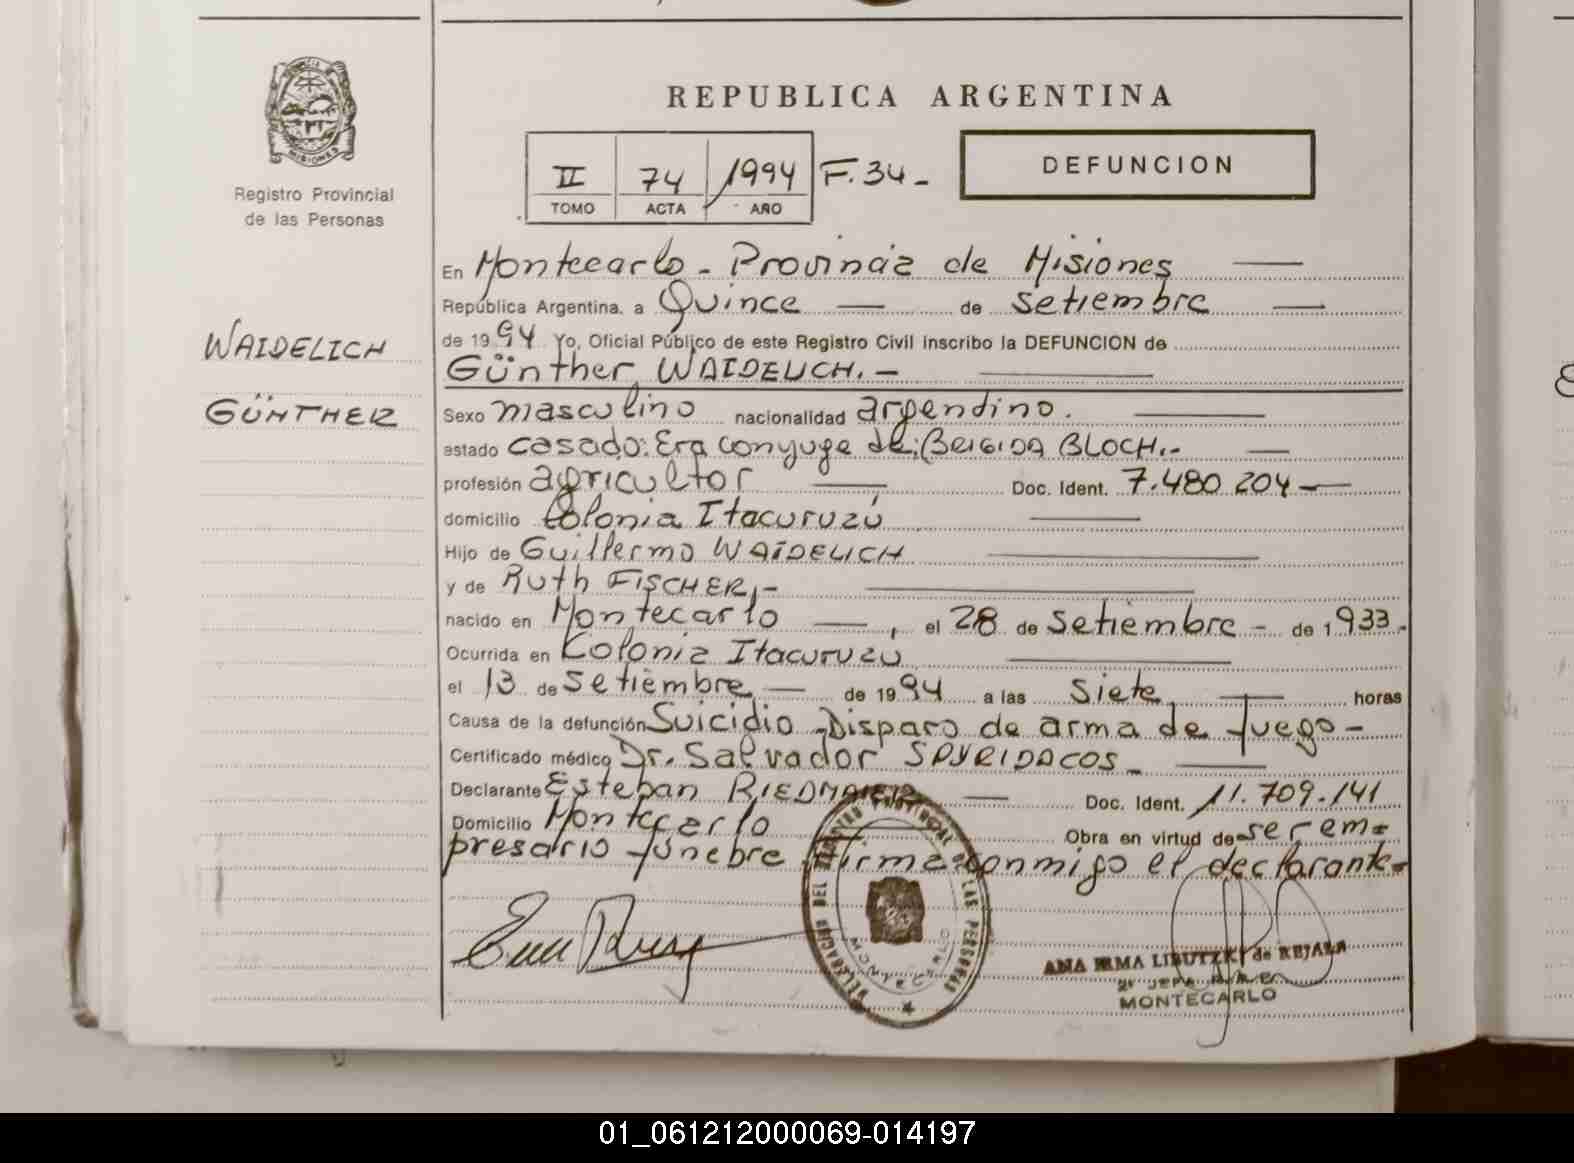 REPUBLICA ARGENTINA
MISIONES
Registro Provincial
de las Personas
II 74 1994 F.34-
TOMO ACTA AÑO
DEFUNCION
WAIDELICH
GÜNTHER
En Montecarlo - Provincia de Misiones
República Argentina. a Quince de setiembre
de 1994 Yo, Oficial Público de este Registro Civil inscribo la DEFUNCION de
Günther WAIDELICH.-
Sexo masculino nacionalidad argendino.
estado casado: Era conyuge de: BRIGIDA BLOCH.-
profesión agricultor Doc. Ident. 7.480 204-
domicilio Colonia Itacuruzú
Hijo de Guillermo WAIDELICH
y de Ruth FISCHER.-
nacido en Montecarlo, el 28 de setiembre - de 1933.-
Ocurrida en Colonia Itacuruzu
el 13 de setiembre de 1994 a las siete horas
Causa de la defunción Suicidio - Disparo de arma de fuego -
Certificado médico Dr. Salvador SPYRIDACOS -
Declarante Esteban RIEDMAIER Doc. Ident. 11.709.141
Domicilio Montecarlo Obra en virtud de ser em=
presario fúnebre firma conmigo el declarante-
DELEGACION DEL REGISTRO PROVINCIAL DE LAS PERSONAS
MONTECARLO
ANA IRMA LIBUTZKI de REJALA
MONTECARLO
01_061212000069-014197